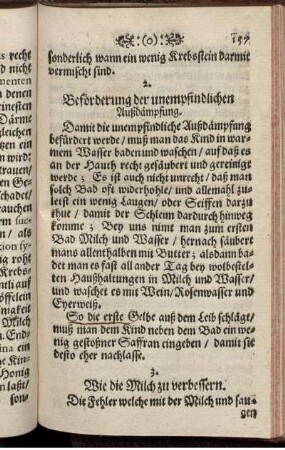 :(0): 157
sonderlich wann ein wenig Krebsstein darmit
vermischt sind.
2.
Beförderung der unempfindlichen
Außdämpfung.
Damit die unempfindliche Außdämpfung
befürdert werde / muß man das Kind in war-
mem Wasser baden und waschen / auf daß es
an der Hauth recht gesäubert und gereinigt
werde; Es ist auch nicht unrecht / daß man
solch Bad oft widerhohle / und allemahl zu-
leist ein wenig Laugen / oder Seiffen darzu
thue / damit der Schleim dardurch hinweg
komme; Bey uns nimt man zum ersten
Bad Milch und Wasser / hernach säubert
mans allenthalben mit Butter; alsdann ba-
det man es fast all ander Tag bey wolbestel-
ten Haußhaltungen in Milch und Wasser /
und waschet es mit Wein / Rosenwasser und
Eyerweiß.
So die erste Gelbe auß dem Leib schlägt /
muß man dem Kind neben dem Bad ein we-
nig gestoßner Saffran eingeben / damit sie
desto eher nachlasse.
3.
Wie die Milch zu verbessern.
Die Fehler welche mit der Milch und sau-
gen